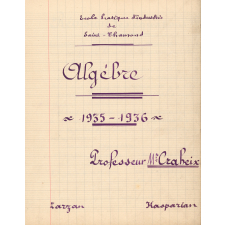 Ecole Pratique Industrielle
de
Saint-Chamond
Algèbre
1935-1936
Professeur Mr Crabeix
Zarzan Kasparian